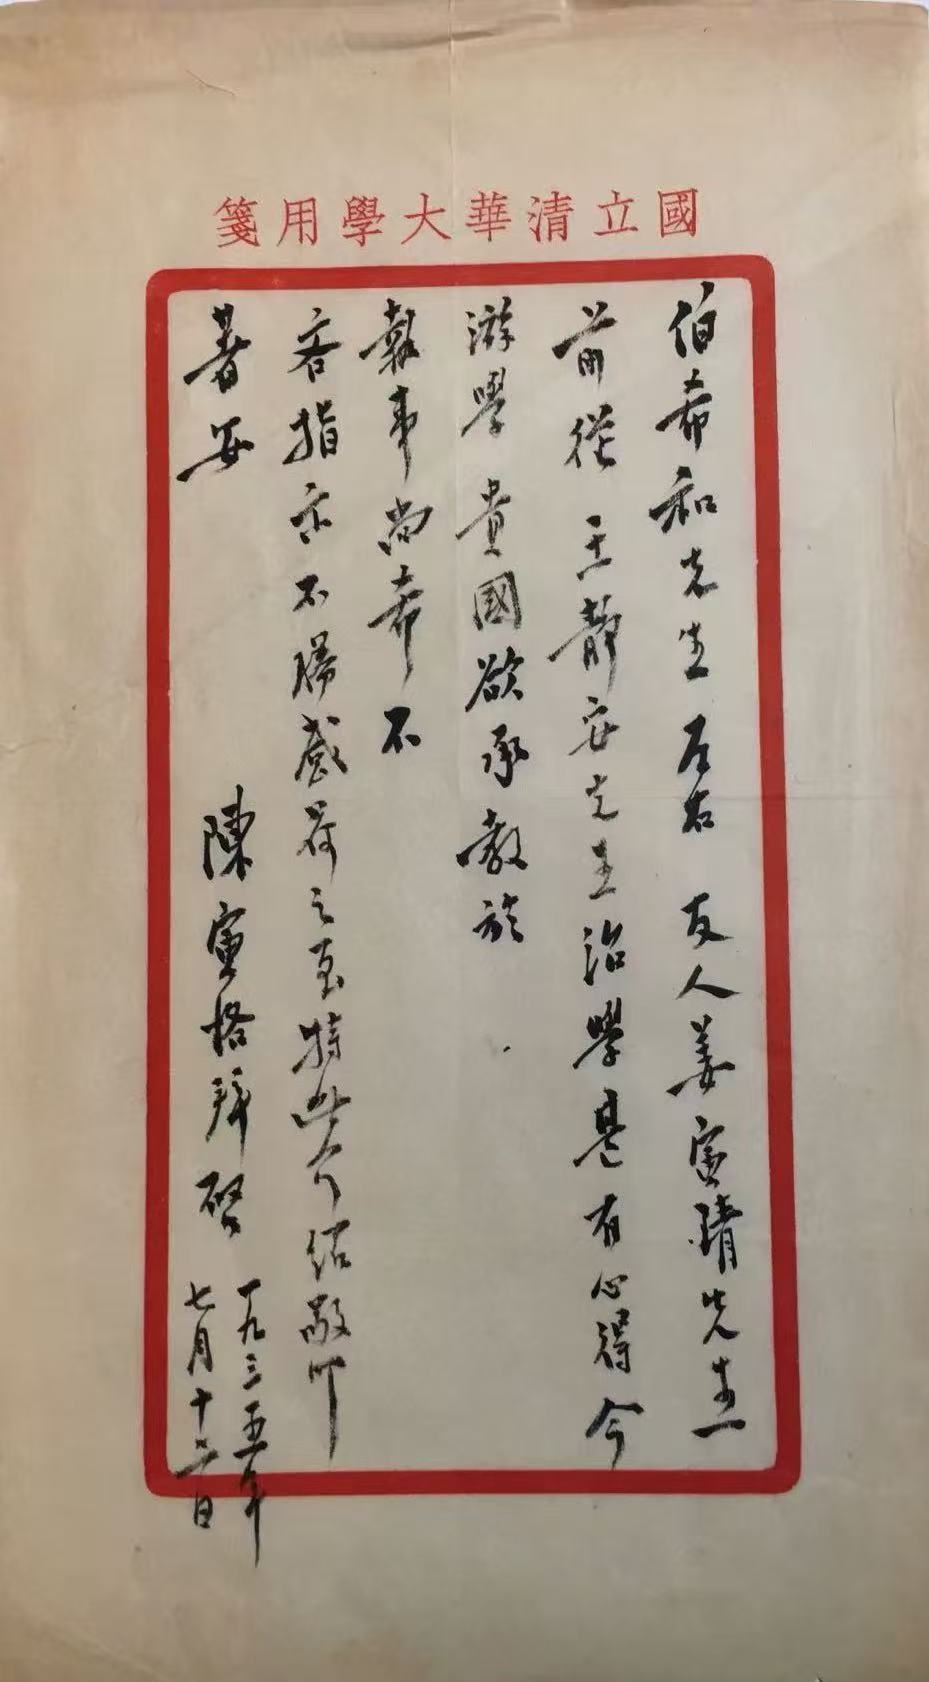 國立清華大學用箋
伯希和先生左右 友人姜寅清先生
前從 王靜安先生治學甚有心得今
游學 貴國欲承教於
執事尚希不
吝指示不勝感荷之至特此介紹敬叩
著安
陳寅恪拜啓
一九三五年
七月十二日